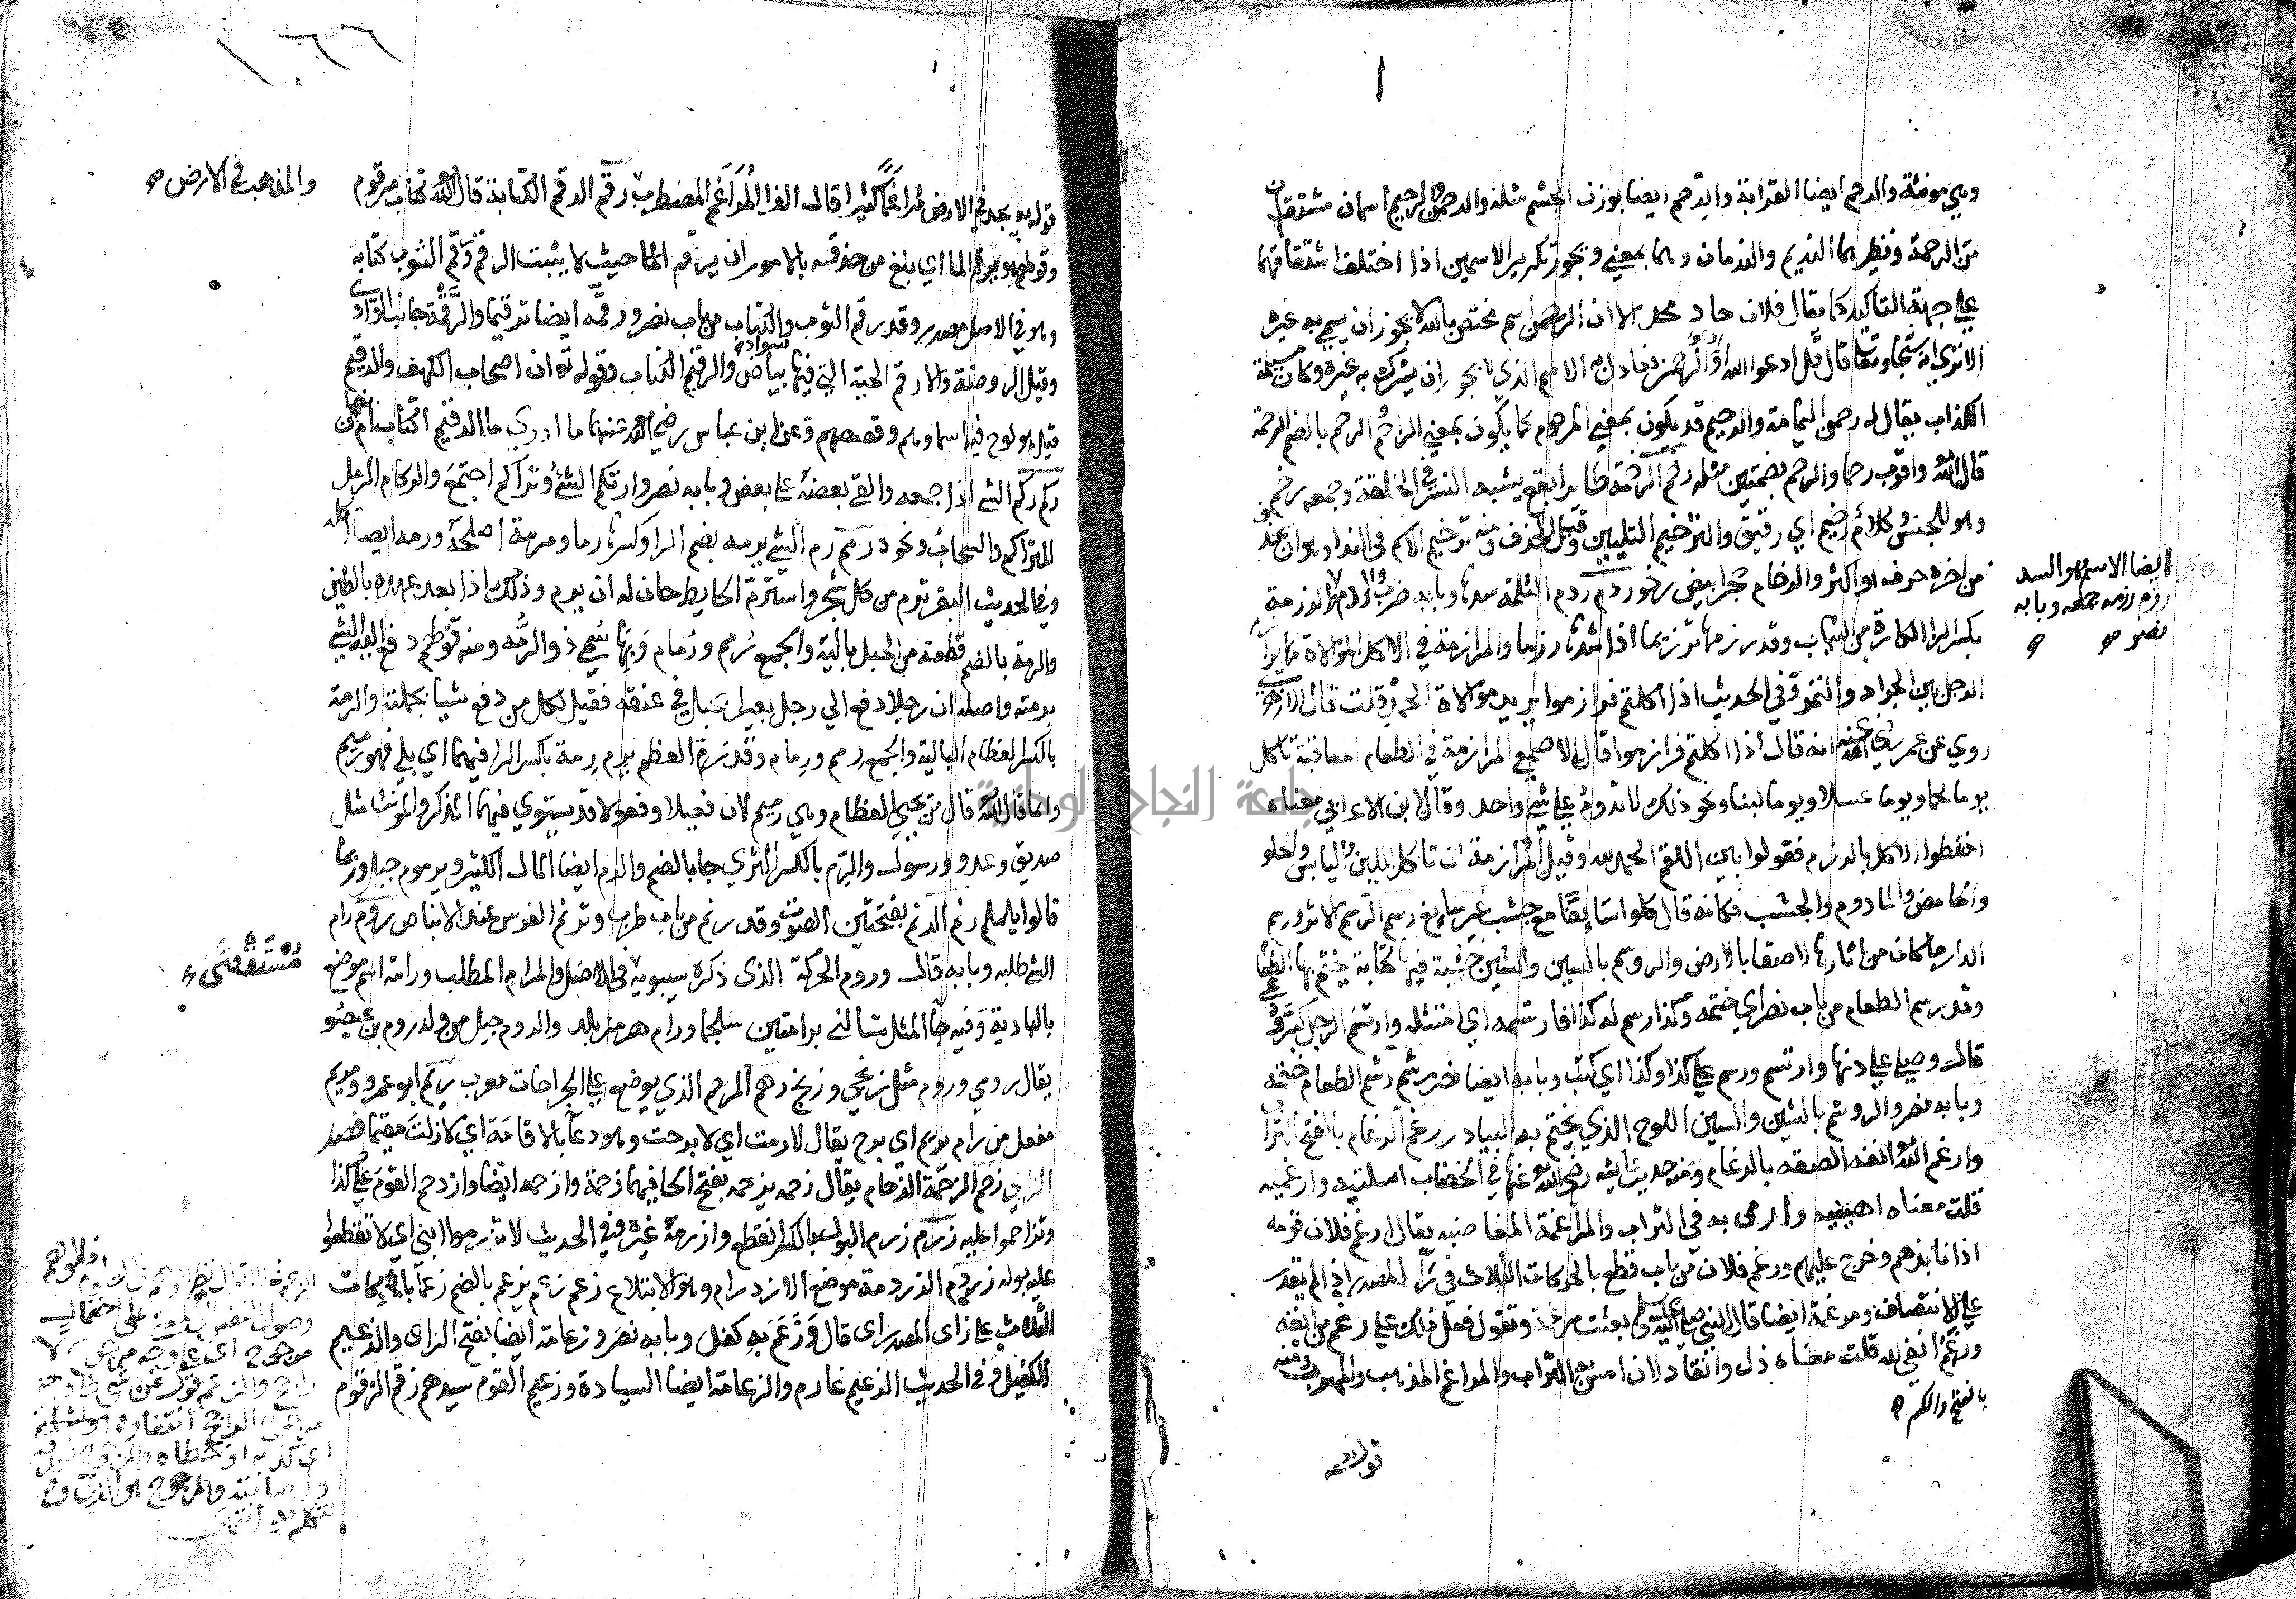 وهي مؤنثة والرحم ايضا القرابة والرحم ايضا بوزن الجسم مثله والرحمن الرحيم اسمان مشتقان
من الرحمة ونظيرهما النديم والندمان وهما بمعني ويجوز تكرير الاسمين اذا اختلف اشتقاقهما
علي جهة التاكيد كما يقال فلان جاد مجد الا ان الرحمن اسم مختص بالله لا يجوز ان يسمي به غيره
الا تري انه سبحانه وتعا قال قل ادعوا الله او ادعوا الرحمن فعادل به الاسم الذي لا يجوز ان يشركه به غيره وكان مسيلمة
الكذاب يقال له رحمن اليمامة والرحيم قد يكون بمعني المرحوم كما يكون بمعني الراحم والرحم بالضم الرحمة
قال الله واقرب رحما والرحم بضمتين مثله رخم الرخمة طاير ابقع يشبه النسر في الخلقة وجمعه رخم
وهو للجنس وكلام رخيم اي رقيق والترخيم التليين وقيل الحذف ومنه ترخيم الاسم في الندا وهو ان يحذف
من اخره حرف او اكثر والرخام حجر ابيض رخو ردم ردم الثلمة سدها وبابه ضرب والردم ايضا الاسم وهو السد
رزم رزمه جمعه وبابه نصر
بكسر الرا الكارة من الثياب وقد رزمها ترزيما اذا شدها رزما والمرازمة في الاكل الموالاة كما يرازم
الرجل بين الجراد والتمر وفي الحديث اذا اكلتم فرازموا يريد موالاة الحمد قلت قال الازهري
روي عن عمر رضي الله عنه انه قال اذا اكلتم فرازموا قال الاصمعي المرازمة في الطعام المعاقبة تاكل
يوما لحما ويوما عسلا ويوما لبنا ونحو ذلك لا تدوم علي شي واحد وقال ابن الاعرابي معناه
اخلطوا الاكل بالشكر فقولوا بين اللقم الحمد لله وقيل المرازمة ان تاكل اللين واليابس والحلو
والحامض والمادوم والجشب فكانه قال كلوا سايغا مع جشب غير سايغ رسم الرسم الاثر ورسم
الدار ما كان من اثارها لاصقا بالارض والروسم بالسين والشين خشبة فيها كتابة يختم بها الطعام
وقد رسم الطعام من باب نصر اي ختمه وكذا رسم له كذا فارتسمه اي امتثله وارتسم الرجل كبر ودعا
قال وصلي علي دنها وارتسم ورسم علي كذا وكذا اي كتب وبابه ايضا نصر رشم رشم الطعام ختمه
وبابه نصر والروشم بالشين والسين اللوح الذي يختم به البيادر رغم الرغام بالفتح التراب
وارغم الله انفه الصقه بالرغام ومنه حديث عايشة رضي الله عنها في الخضاب اسلتيه وارغميه
قلت معناه اهينيه وارمي به في التراب والمراغمة المغاضبة يقال راغم فلان قومه
اذا نابذهم وخرج عليهم ورغم فلان من باب قطع بالحركات الثلاث في را المصدر اذا لم يقدر
علي الانتصاف ومرغمة ايضا قال النبي صلي الله عليه وسلم بعثت مرغمة وتقول فعل ذلك علي رغم من انفه
ورغم انفي لله قلت معناه ذل وانقاد لان امس التراب والمراغم المذهب والمهرب ومنه
بالفتح والكسر
قوله
١٠٦٦
قوله يجد في الارض مراغما كثيرا قال الفرا المراغم المضطرب والمذهب في الارض رقم الرقم الكتابة قال الله كتاب مرقوم
وقولهم هو يرقم الما اي بلغ من حذقه بالامور ان يرقم الما حيث لا يثبت الرقم ورقم الثوب كتابه
وهو في الاصل مصدر وقد رقم الثوب والكتاب من باب نصر ورقمه ايضا ترقيما والرقمة جانب الوادي
وقيل الروضة والارقم الحية التي فيها بياض وسواد والرقيم الكتاب وقوله تع ان اصحاب الكهف والرقيم
قيل هو لوح فيه اسماوهم وقصصهم وعن ابن عباس رضي الله عنهما ما ادري ما الرقيم اكتاب ام بنيان
ركم ركم الشي اذا جمعه والقي بعضه علي بعض وبابه نصر وارتكم الشي وتراكم اجتمع والركام الرمل
المتراكم والسحاب ونحوه رمم رم الشي يرمه بضم الرا وكسرها رما ومرمة اصلحه ورمه ايضا اكله
وفي الحديث البقر ترم من كل شجر واسترم الحايط حان له ان يرم وذلك اذا بعد عهده بالطين
والرمة بالضم قطعة من الحبل بالية والجمع رمم ورمام وبها سمي ذو الرمة ومنه قولهم دفع اليه الشي
برمته واصله ان رجلا دفع الي رجل بعيرا بحبل في عنقه فقيل لكل من دفع شيا بجملته والرمة
بالكسر العظام البالية والجمع رمم ورمام وقد رم العظم يرم رمة بالكسر الرا فيهما اي بلي فهو رميم
وانما قال الله قال من يحيي العظام وهي رميم لان فعيلا وفعولا قد يستوي فيهما المذكر والمؤنث مثل
صديق وعدو ورسول والرم بالكسر الثري جا بالضم والرم ايضا المال الكثير ويرموم جبل وربما
قالوا يلملم رنم الرنم بفتحتين الصوت وقد رنم من باب طرب وترنم القوس عند الانباض روم رام
الشي طلبه وبابه قال وروم الحركة الذي ذكره سيبويه مستقصي في الاصل والمرام المطلب ورامة اسم موضع
بالبادية وفيه جا المثل تسالني برامتين سلجما ورام هرمز بلد والروم جيل من ولد روم بن عيصو
يقال رومي وروم مثل زنجي وزنج رهم المرهم الذي يوضع علي الجراحات معرب ريم ابو عمرو ومريم
مفعل من رام يريم اي برح يقال لا رمت اي لا برحت وهو دعا بالاقامة اي لا زلت مقيما فصل
الزاي زحم الزحمة الزحام يقال زحمه يزحمه بفتح الحا فيهما زحمة وازحمه ايضا وازدحم القوم علي كذا
وتزاحموا عليه زرم زرم البول بالكسر انقطع وازرمه غيره وفي الحديث لا تزرموا ابني اي لا تقطعوا
عليه بوله زردم الزردمة موضع الازدرام وهو الابتلاع زعم زعم يزعم بالضم زعما بالحركات
الثلاث علي زاي المصدر اي قال وزعم به كفل وبابه نصر وزعامة ايضا بفتح الزاي والزعيم
الكفيل وفي الحديث الزعيم غارم والزعامة ايضا السيادة وزعيم القوم سيدهم زقم الزقوم